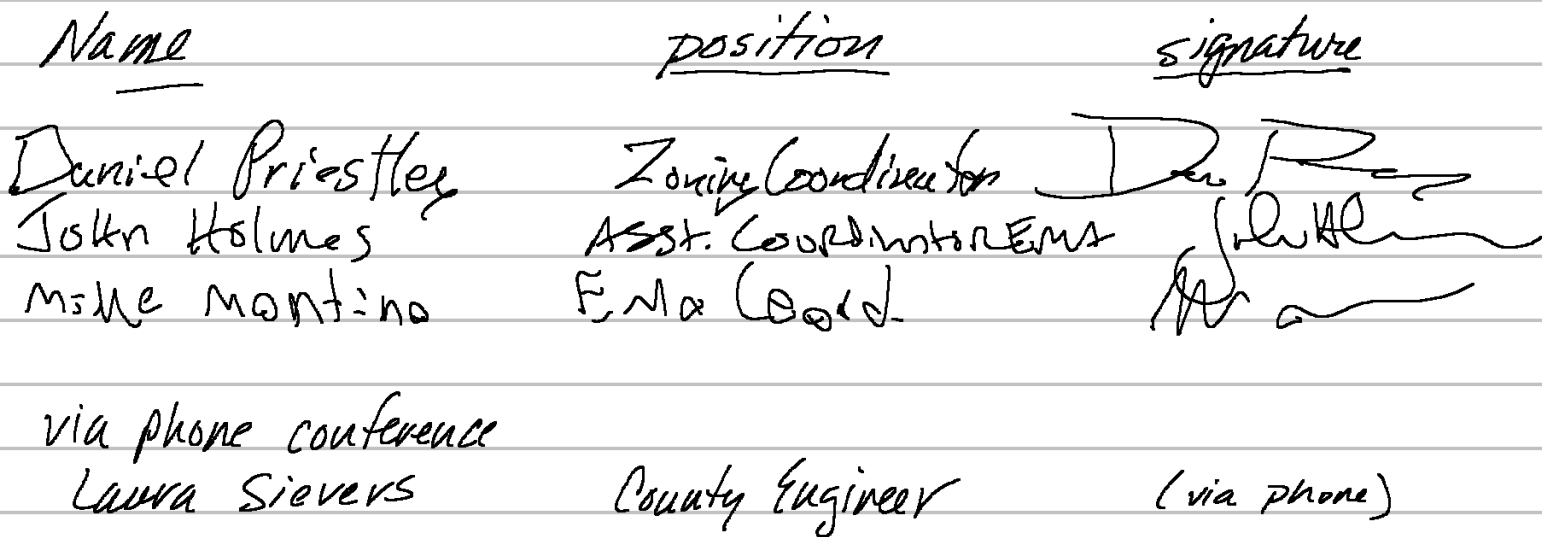 Name position signature
Daniel Priestley Zoning Coordinator
John Holmes Asst. Coordinator EMA
Mike Montino EMa Coord.
via phone conference
Laura Sievers County Engineer (via phone)